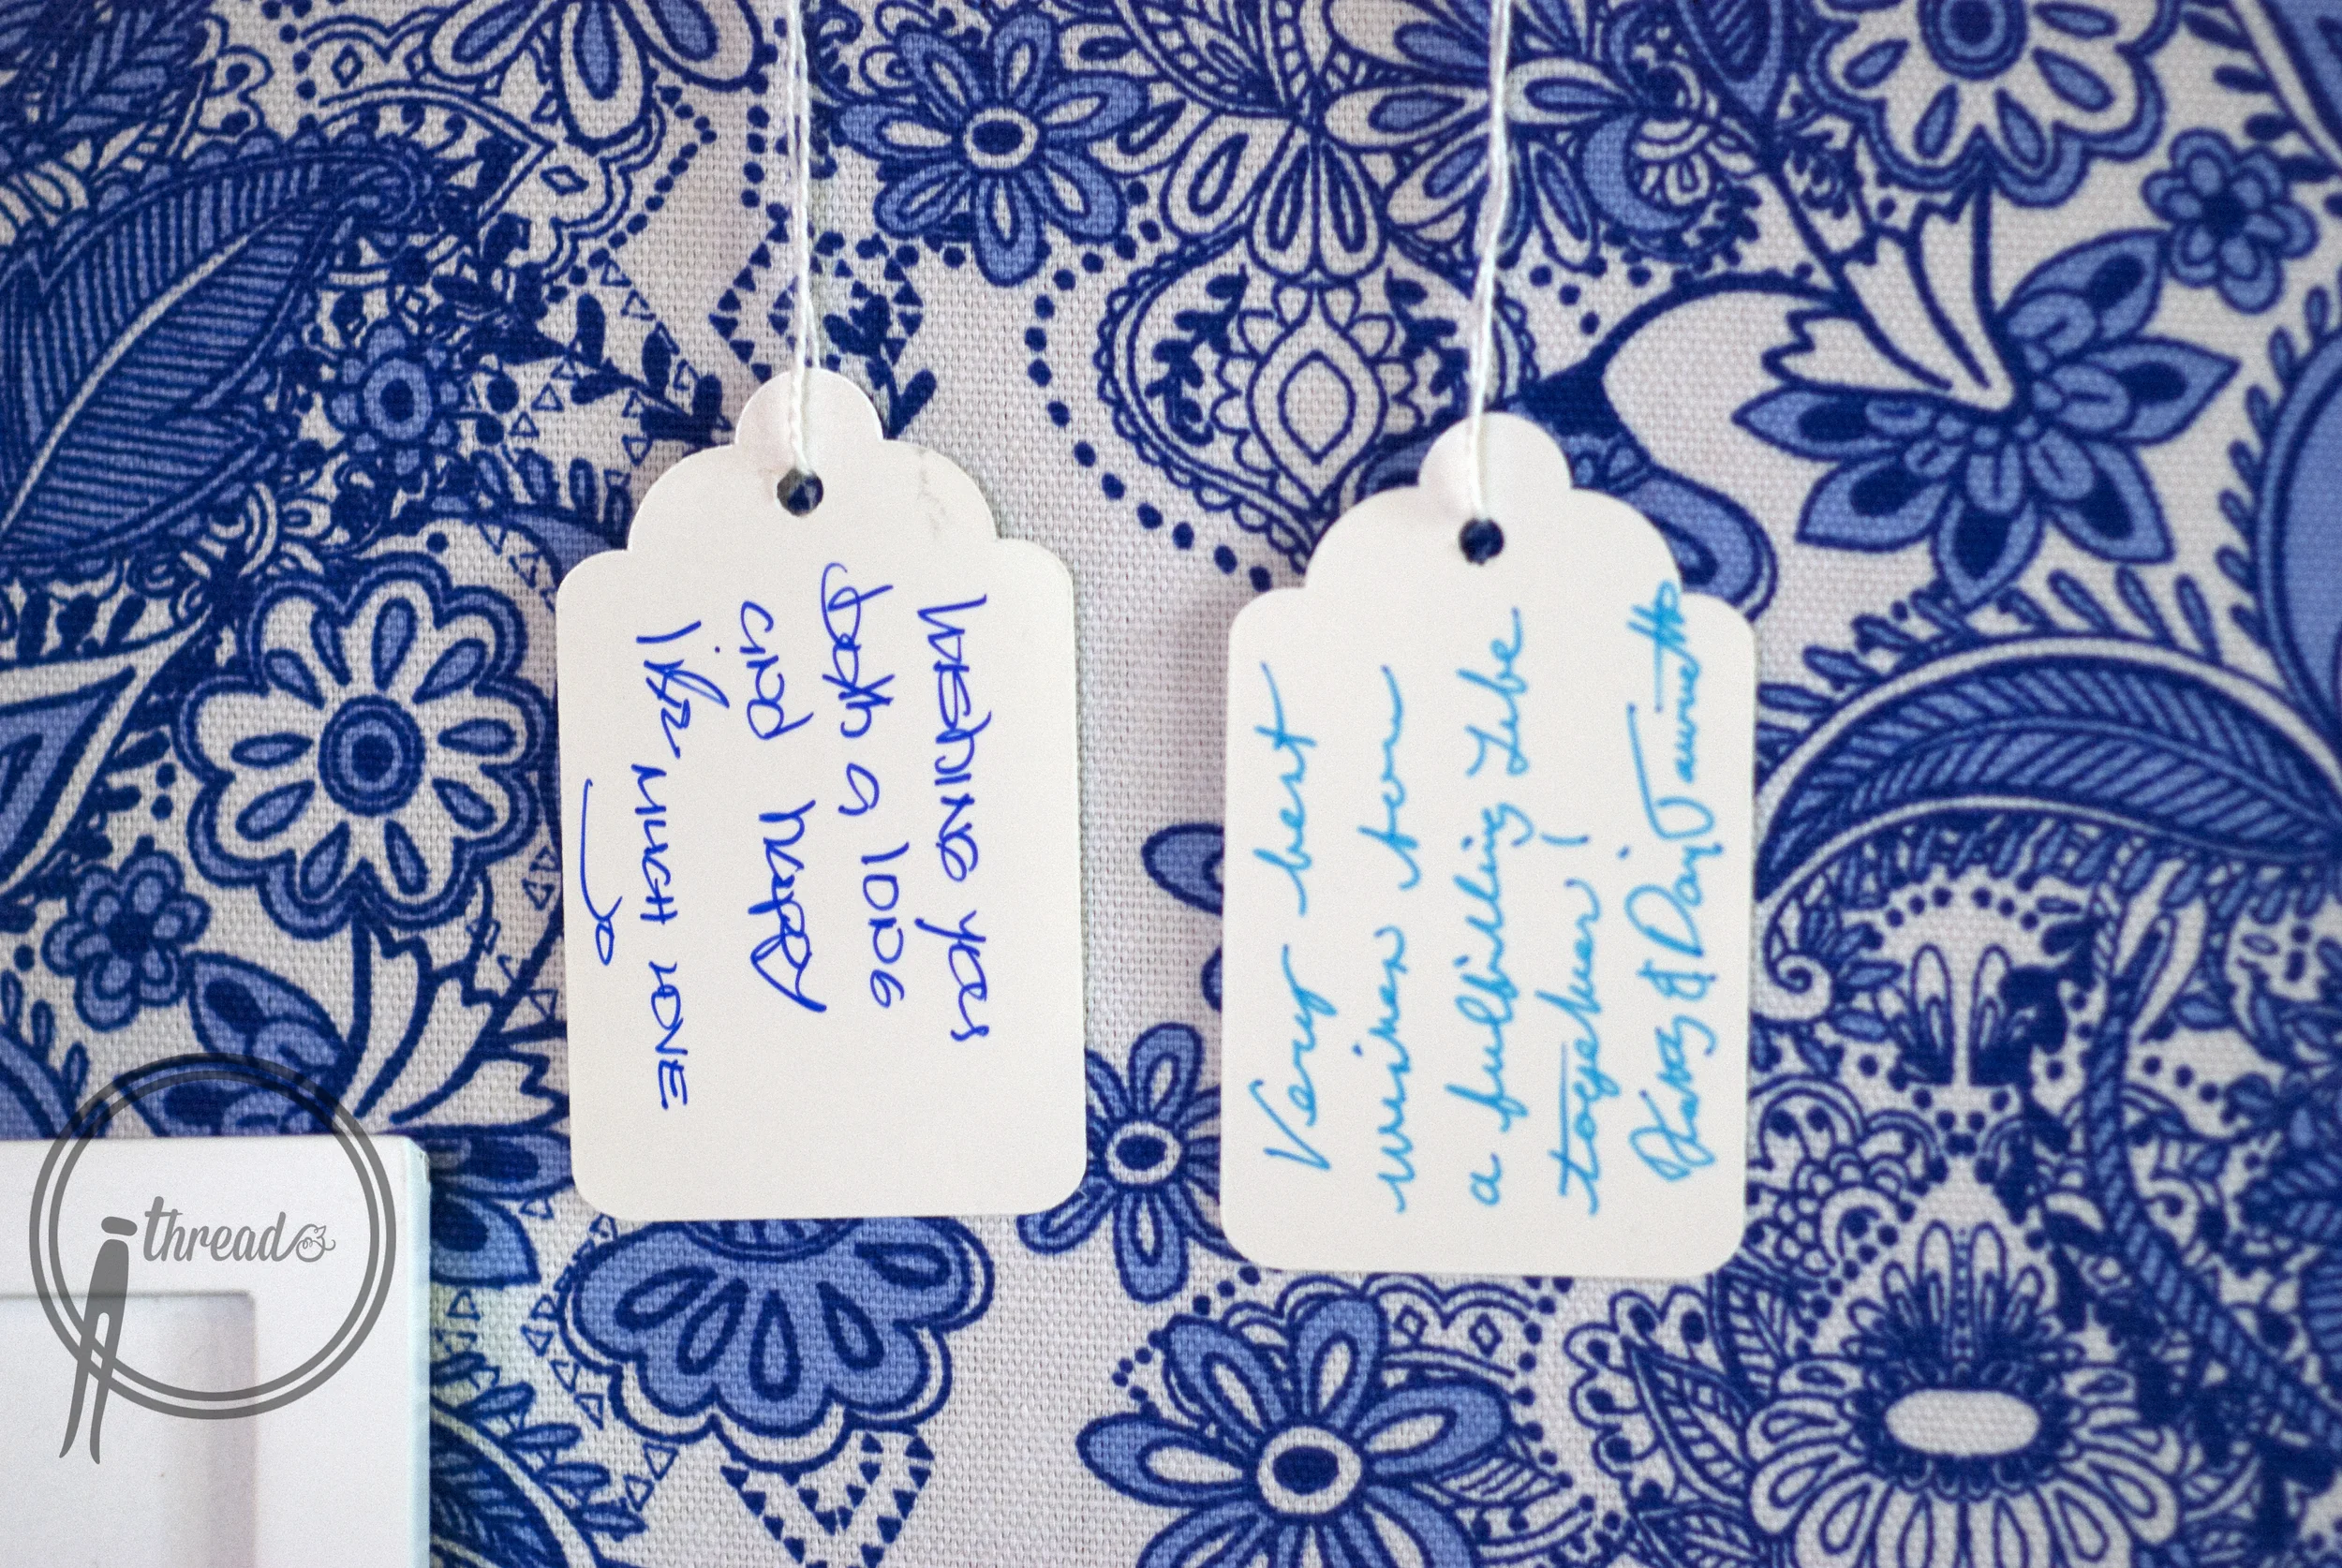 WISHING you
both a long
and happy
life MUCH LOVE
Jo
Very best
wishes for
a fulfilling life
together!
& David
ithread